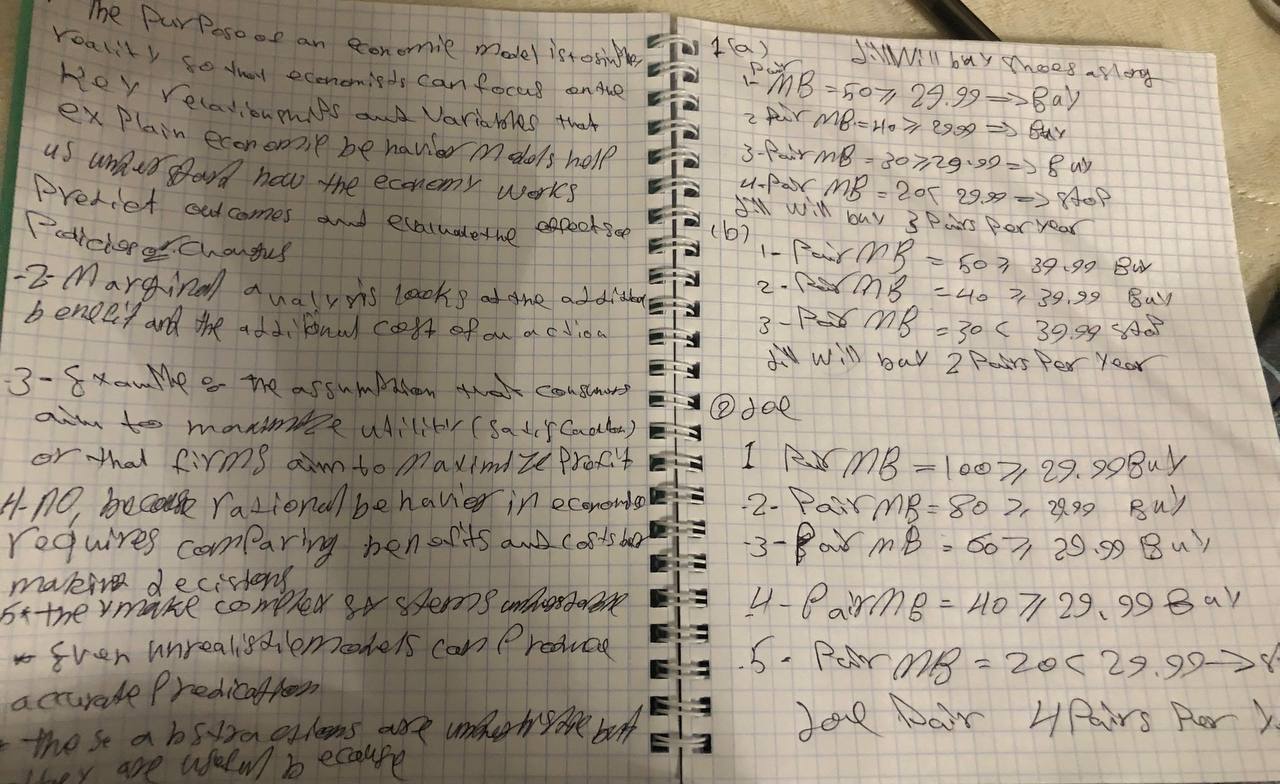 The Purpose of an economic model is to
reality so that economists can focus on the
Key relationships and Variables that
explain economic behavior Models help
us understand how the economy works
Predict outcomes and evaluate the effects of
Policies or Changes
-2- Marginal analysis looks at the addition
benefit and the additional cost of an action
-3- Example of the assumption that consumers
aim to maximize utility (Satisfaction)
or that firms aim to Maximize Profit
4- NO, because rational behavior in economic
requires comparing benefits and costs
making decistons
5* they make complex systems
* Even unrealistic models can Produce
accurate Predication
* these abstractions are but
they are useful because
1(a) Jill Will buy Shoes as long
1- Pair MB = 50 ⩾ 29.99 => Buy
2 Pair MB = 40 ⩾ 29.99 => Buy
3- Pair MB = 30 ⩾ 29.99 => Buy
4- Pair MB = 20 < 29.99 => stop
Jill will buy 3 Pairs Per Year
(b)
1- Pair MB = 50 ⩾ 39.99 Buy
2- Pair MB = 40 ⩾ 39.99 Buy
3- Pair MB = 30 < 39.99 stop
Jill Will buy 2 Pairs Per Year
② Joe
1 Pair MB = 100 ⩾ 29.99 Buy
-2- Pair MB = 80 ⩾ 29.99 Buy
-3- Pair MB = 60 ⩾ 29.99 Buy
4- Pair MB = 40 ⩾ 29.99 Buy
.5- Pair MB = 20 < 29.99 →
Joe Pair 4 Pairs Per